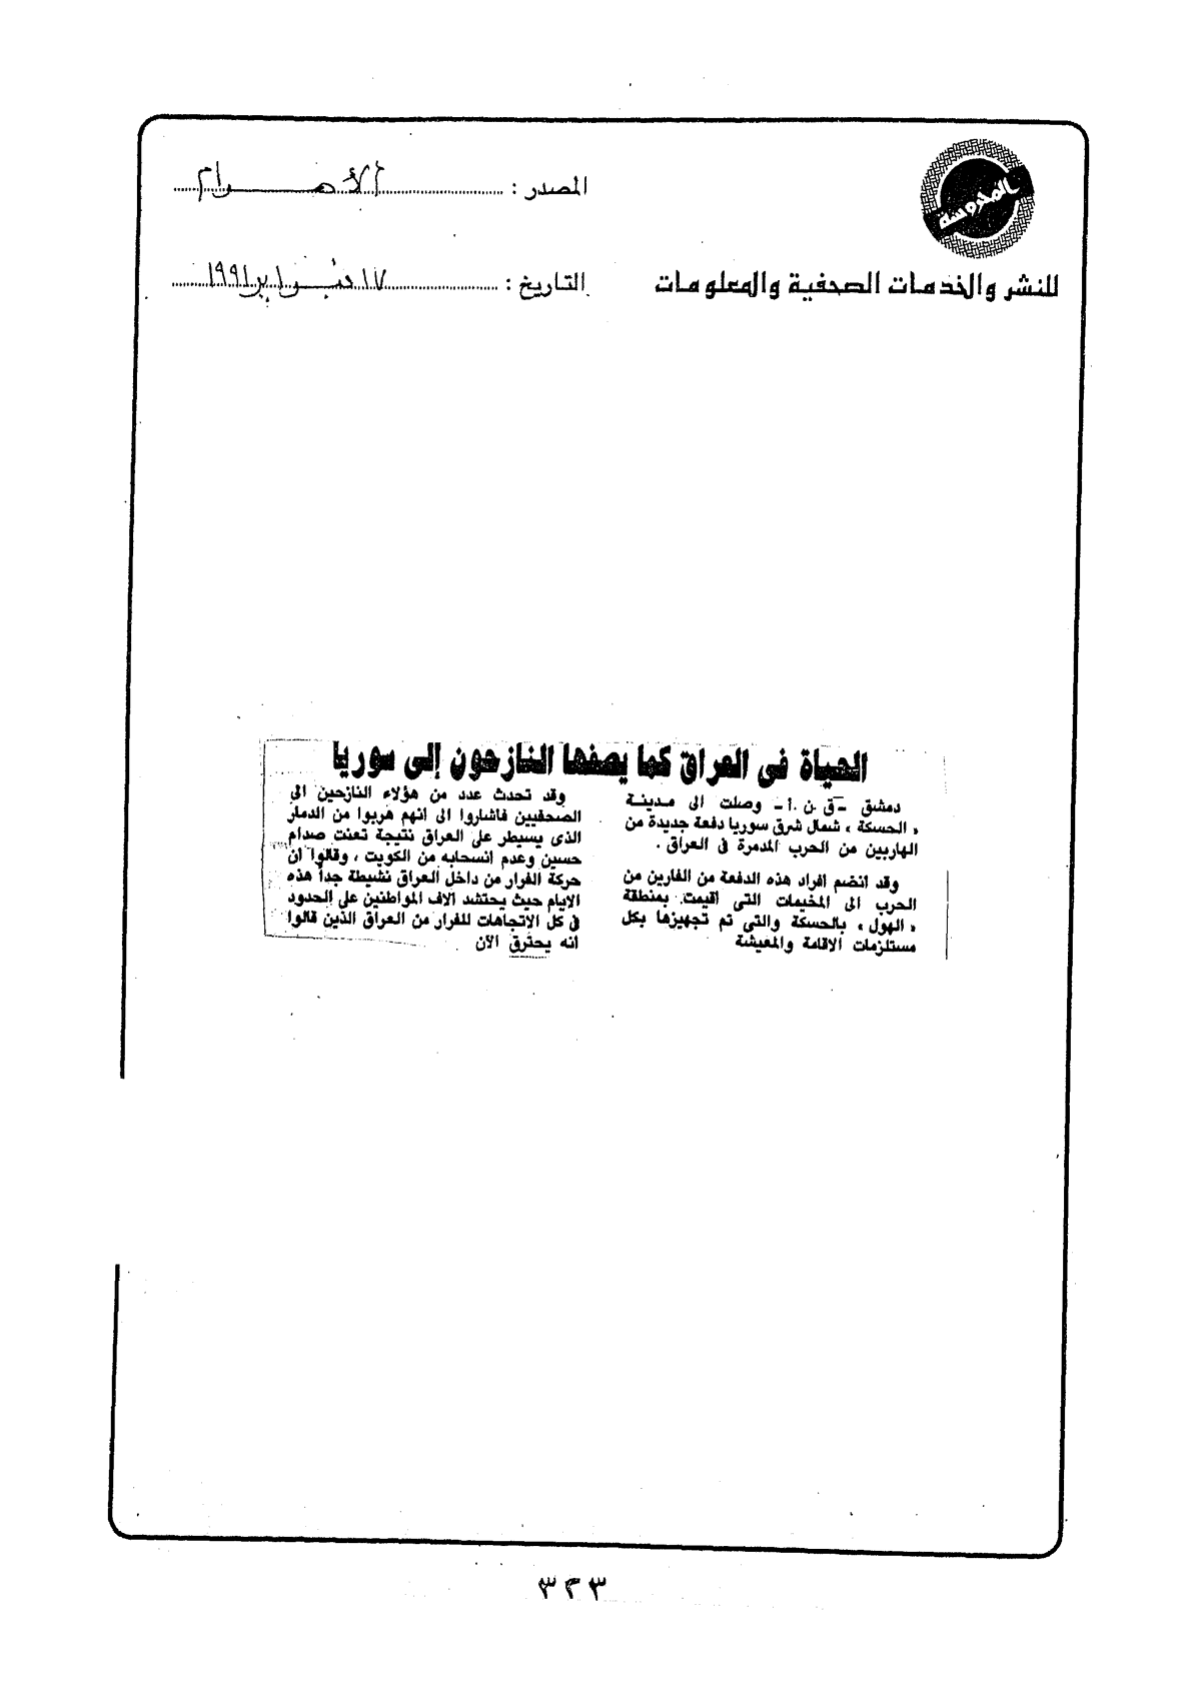 المحروسة
للنشر والخدمات الصحفية والمعلومات
المصدر : الأهرام
التاريخ : ١٧ فبراير ١٩٩١
الحياة فى العراق كما يصفها النازحون إلى سوريا
دمشق - ق . ن . ا - وصلت الى مدينة
« الحسكة » شمال شرق سوريا دفعة جديدة من
الهاربين من الحرب المدمرة فى العراق .
وقد انضم افراد هذه الدفعة من الفارين من
الحرب الى المخيمات التى اقيمت بمنطقة
« الهول » بالحسكة والتى تم تجهيزها بكل
مستلزمات الاقامة والمعيشة
وقد تحدث عدد من هؤلاء النازحين الى
الصحفيين فاشاروا الى انهم هربوا من الدمار
الذى يسيطر على العراق نتيجة تعنت صدام
حسين وعدم انسحابه من الكويت ، وقالوا ان
حركة الفرار من داخل العراق نشيطة جداً هذه
الايام حيث يحتشد الاف المواطنين على الحدود
فى كل الاتجاهات للفرار من العراق الذين قالوا
انه يحترق الآن
٣٢٣